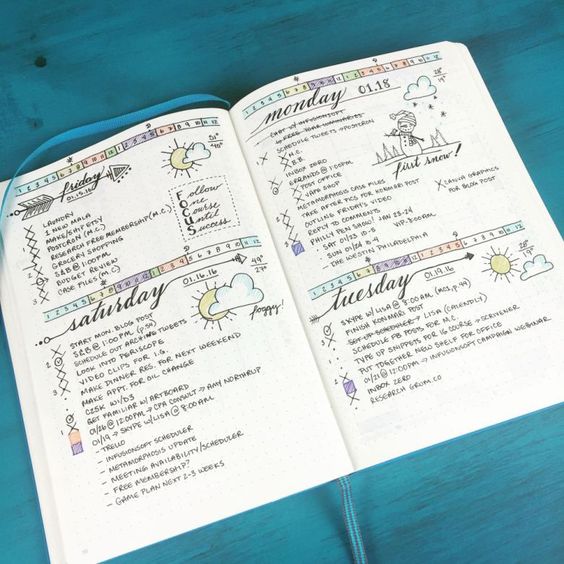 friday
01.15.16
Follow
One
Course
Until
Success
LAUNDRY
1 NEW MALA
MAKE/SHIP ETSY
POSTCRON (M.C.)
RESEARCH FREE MEMBERSHIP (M.C.)
GROCERY SHOPPING
S&B @ 1:00PM
BUDGET REVIEW
CASE FILES (M.C.)
saturday
01.16.16
49°
27°
foggy!
START MON. BLOG POST
S&B @ 11:00PM
SCHEDULE OUT ARCHIVE TWEETS
LOOK INTO PERISCOPE
VIDEO CLIPS FOR I.G.
MAKE DINNER RES. FOR NEXT WEEKEND
MAKE APPT. FOR OIL CHANGE
CZSK W/D3
GET FAMILIAR W/ ARTBOARD
01/26 @ 12:00PM → CPA CONSULT → AMY NORTHRUP
01/19 → SKYPE W/ LISA @ 8:00AM
- TRELLO
- INFUSIONSOFT SCHEDULER
- METAMORPHOSIS UPDATE
- MEETING AVAILABILITY/SCHEDULER
- FREE MEMBERSHIP?
- GAME PLAN NEXT 2-3 WEEKS
monday
01.18
28°
19°
first snow!
CHAT W/ INFUSIONSOFT
SCHEDULE TWEETS → POSTCRON
M.C.
B.B.
INBOX ZERO
ERRANDS @ 1:00PM
POST OFFICE
VAPE SHOP
METAMORPHOSIS CASE FILES
TAKE AFTER PICS FOR KONMARI POST
OUTLINE FRIDAY'S VIDEO
REPLY TO COMMENTS
PHILLY PEN SHOW JAN 22-24
SAT 01/23 10-5
VIP 3:00AM
SUN 01/24 10-4
- THE WESTIN PHILADELPHIA
CANVA GRAPHICS
FOR BLOG POST
tuesday
01.19.16
28°
19°
SKYPE W/ LISA @ 8:00AM (MCS, p.94)
FINISH KONMARI POST
SET UP SCHEDULER → LISA (CALENDLY)
SCHEDULE FB POSTS FOR M.C.
TYPE UP SNIPPETS FOR 16 COURSE → SCRIVENER
PUT TOGETHER NEW SHELF FOR OFFICE
01/21 @ 12:00PM → INFUSIONSOFT CAMPAIGN WEBINAR
INBOX ZERO
RESEARCH GRUM.CO